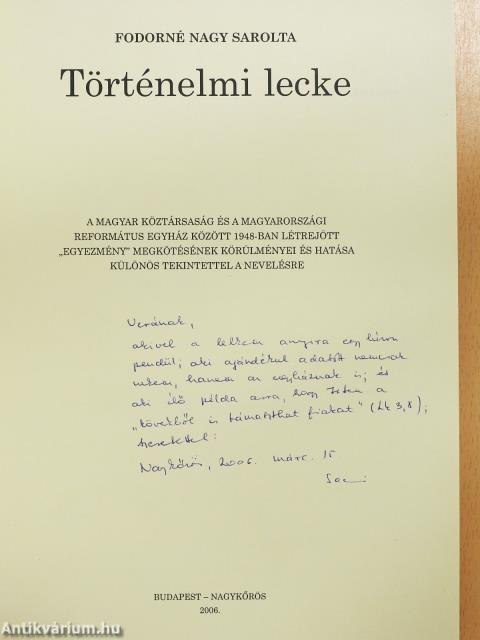 FODORNÉ NAGY SAROLTA
Történelmi lecke
A MAGYAR KÖZTÁRSASÁG ÉS A MAGYARORSZÁGI
REFORMÁTUS EGYHÁZ KÖZÖTT 1948-BAN LÉTREJÖTT
„EGYEZMÉNY” MEGKÖTÉSÉNEK KÖRÜLMÉNYEI ÉS HATÁSA
KÜLÖNÖS TEKINTETTEL A NEVELÉSRE
Verának,
akivel a lelkem annyira egy húron
pendül; aki ajándékul adatott nemcsak
nekem, hanem az egyháznak is; és
aki élő példa arra, hogy Isten a
„kövekből is támaszthat fiakat” (Lk 3,8);
szeretettel:
Nagykőrös, 2006. márc. 15
BUDAPEST – NAGYKŐRÖS
2006.
Antikvárium.hu